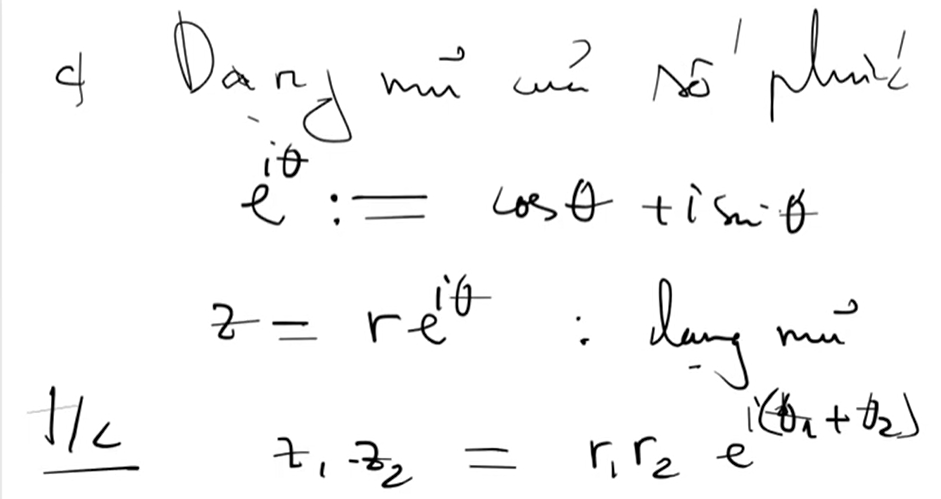 c) Dạng mũ của số phức
e^{iθ} := cosθ + i sinθ
z = re^{iθ} : dạng mũ
T/c z₁.z₂ = r₁r₂ e^{i(θ₁+θ₂)}